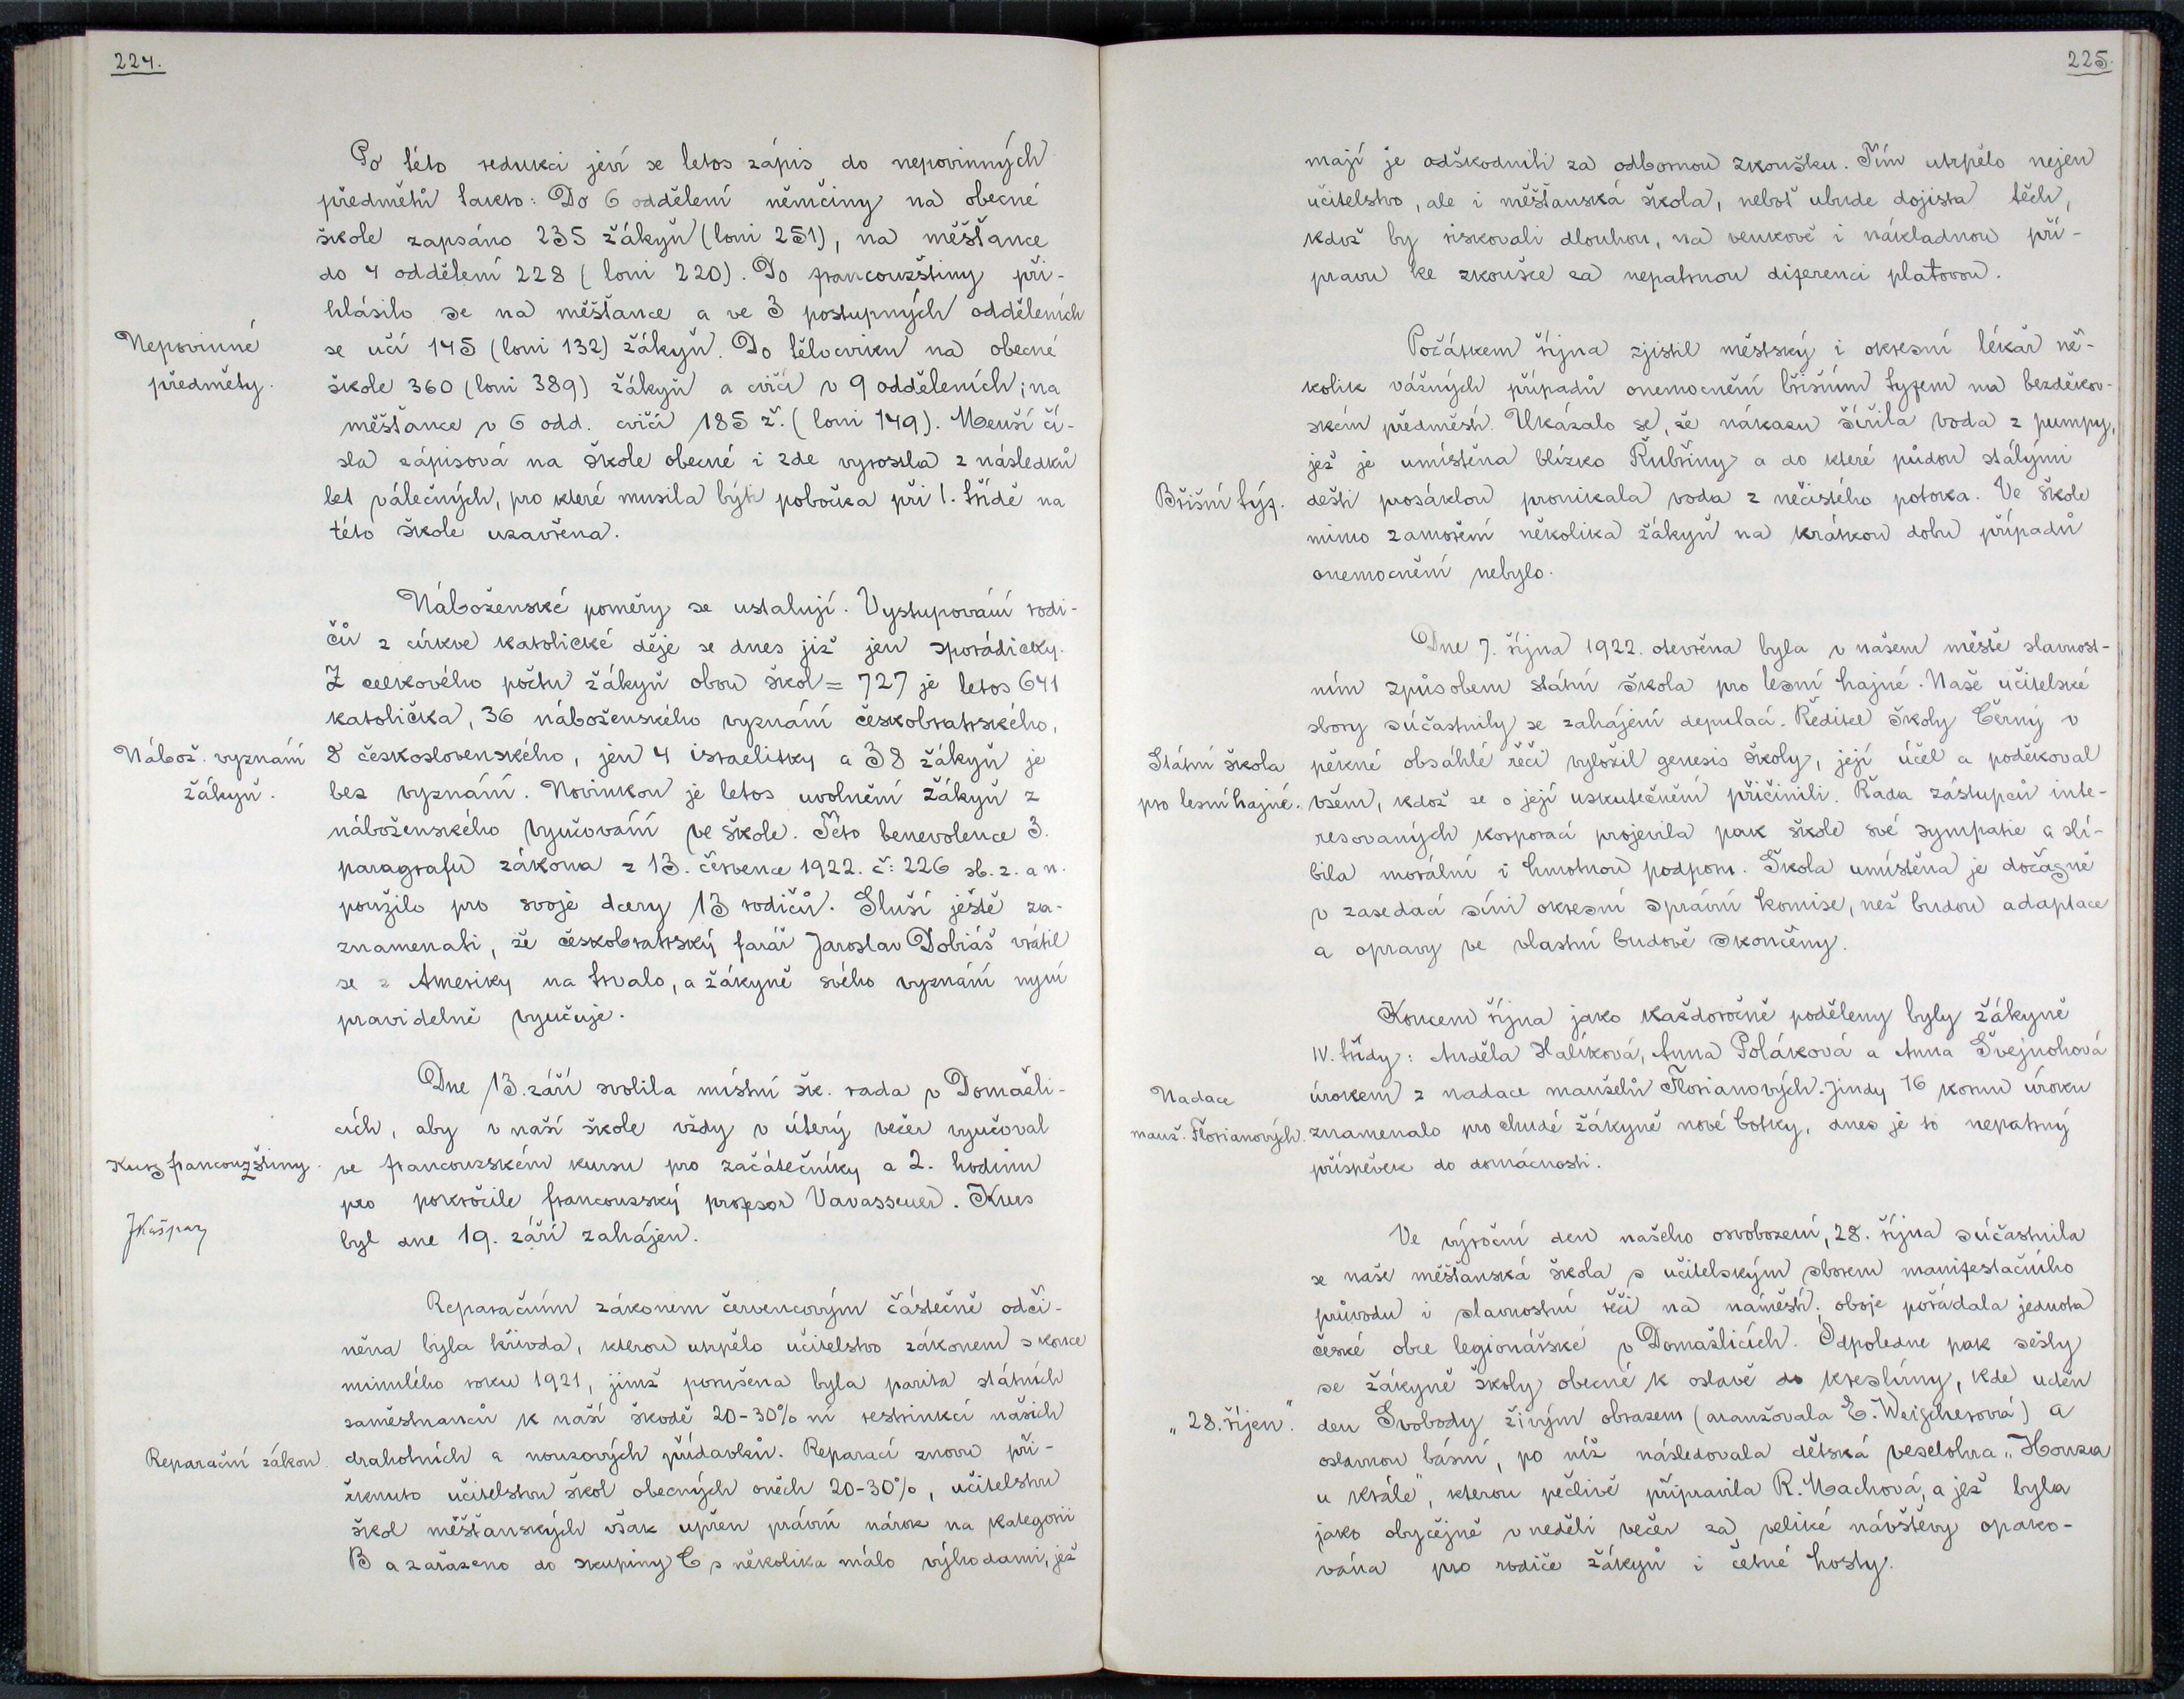 224.
Po této redukci jeví se letos zápis do nepovinných
předmětů takto: Do 6 oddělení němčiny na obecné
škole zapsáno 235 žákyň (loni 251), na měšťance
do 4 oddělení 228 (loni 220). Do francouzštiny při-
hlásilo se na měšťance a ve 3 postupných odděleních
Nepovinné
předměty.
se učí 145 (loni 132) žákyň. Do tělocviku na obecné
škole 360 (loni 389) žákyň a cvičí v 9 odděleních; na
měšťance v 6 odd. cvičí 185 ž. (loni 149). Menší čí-
sla zápisová na škole obecné i zde vyrostla z následků
let válečných, pro které musila býti pobočka při 1. třídě na
této škole uzavřena.
Náboženské poměry se ustalují. Vystupování rodi-
čů z církve katolické děje se dnes již jen sporádicky.
Z celkového počtu žákyň obou škol = 727 je letos 641
katolička, 36 náboženského vyznání českobratrského,
Nábož. vyznání
žákyň.
8 československého, jen 4 israelitky a 38 žákyň je
bez vyznání. Novinkou je letos uvolnění žákyň z
náboženského vyučování ve škole. Této benevolence 3.
paragrafu zákona z 13. července 1922. č: 226 sb. z. a n.
použilo pro svoje dcery 13 rodičů. Sluší ještě za-
znamenati, že českobratrský farář Jaroslav Dobiáš vrátil
se z Ameriky na trvalo, a žákyně svého vyznání nyní
pravidelně vyučuje.
Dne 13. září svolila místní šk. rada v Domažli-
cích, aby v naší škole vždy v úterý večer vyučoval
Kurs francouzštiny.
ve francouzském kursu pro začátečníky a 2. hodinu
pro pokročile francouzský profesor Vavasseuer. Kurs
JKašpar
byl dne 19. září zahájen.
Reparačním zákonem červencovým částečně odči-
něna byla křivda, kterou utrpělo učitelstvo zákonem s konce
minulého roku 1921, jímž porušena byla parita státních
zaměstnanců k naší škodě 20-30% ní restrinkcí našich
Reparační zákon.
drahotních a nouzových přídavků. Reparací znovu při-
řknuto učitelstvu škol obecných oněch 20-30%, učitelstvu
škol měšťanských však upřen právní nárok na kategorii
B a zařazeno do skupiny C s několika málo výhodami, jež
225.
mají je odškodniti za odbornou zkoušku. Tím utrpělo nejen
učitelstvo, ale i měšťanská škola, neboť ubude dojista těch,
kdož by riskovali dlouhou, na venkově i nákladnou pří-
pravu ke zkoušce za nepatrnou diferenci platovou.
Počátkem října zjistil městský i okresní lékař ně-
kolik vážných případů onemocnění břišním tyfem na bezděkov-
ském předměstí. Ukázalo se, že nákazu šířila voda z pumpy,
jež je umístěna blízko Rubřiny a do které půdou stálými
Břišní týf.
dešti prosáklou pronikala voda z nečistého potoka. Ve škole
mimo zamoření několika žákyň na krátkou dobu případů
onemocnění nebylo.
Dne 7. října 1922. otevřena byla v našem městě slavnost-
ním způsobem státní škola pro lesní hajné. Naše učitelské
sbory súčastnily se zahájení deputací. Ředitel školy Černý v
Státní škola
pro lesní hajné.
pěkné obsáhlé řeči vyložil genesis školy, její účel a poděkoval
všem, kdož se o její uskutečnění přičinili. Řada zástupců inte-
resovaných korporací projevila pak škole své sympatie a slí-
bila morální i hmotnou podporu. Škola umístěna je dočasně
v zasedací síni okresní správní komise, než budou adaptace
a opravy ve vlastní budově skončeny.
Koncem října jako každoročně poděleny byly žákyně
IV. třídy: Anděla Halíková, Anna Poláková a Anna Švejnohová
Nadace
manž. Florianových.
úrokem z nadace manželů Florianových. Jindy 16 korun úroku
znamenalo pro chudé žákyně nové botky, dnes je to nepatrný
příspěvek do domácnosti.
Ve výroční den našeho osvobození, 28. října súčastnila
se naše měšťanská škola s učitelským sborem manifestačního
průvodu i slavnostní řeči na náměstí; oboje pořádala jednota
české obce legionářské v Domažlicích. Odpoledne pak sešly
se žákyně školy obecné k oslavě do kreslírny, kde uděn
„28. říjen".
den Svobody živým obrazem (aranžovala E. Weigherová) a
oslavnou básní, po níž následovala dětská veselohra „Honza
u krále", kterou pečlivě připravila R. Machová, a jež byla
jako obyčejně v neděli večer za veliké návštěvy opako-
vána pro rodiče žákyň i četné hosty.